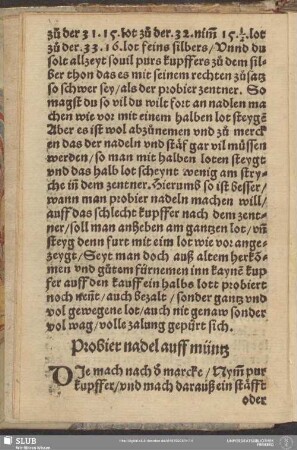 zů der 31.15.lot zů der.32.nim̃ 15.½.lot
zů der.33.16.lot feins silbers/Vnnd du
solt allzeyt souil purs kupffers zů dem sil-
ber thon das es mit seinem rechten zůsatz
so schwer sey/als der probier zentner. So
magst du so vil du wilt fort an nadlen ma
chen wie vor mit einem halben lot steygē
Aber es ist wol abzůnemen vnd zů merck
en das der nadeln vnd stäff gar vil müssen
werden/so man mit halben loten steygt
vnd das halb lot scheynt wenig am stry-
che iñ dem zentner. Hierumb so ist besser/
wann man probier nadeln machen will/
auff das schlecht kupffer nach dem zent-
ner/soll man anheben am gantzen lot/vñ
steyg denn furt mit eim lot wie vor ange-
zeygt/Seyt man doch auß altem herkō-
men vnd gůtem fürnemen inn kaynē kup
fer auff den kauff ein halbs lott probiert
noch neñt/auch bezalt/sonder gantz vnd
vol gewegene lot/auch nit genaw sonder
vol wag/volle zalung gepürt sich.
Probier nadel auff müntz
DIe mach nach d̄ marcke/Nym̃ pur
kupffer/vnd mach darauß ein stäfft
oder
SLUB
Wir führen Wissen.
UNIVERSITÄTSBIBLIOTHEK
FREIBERG